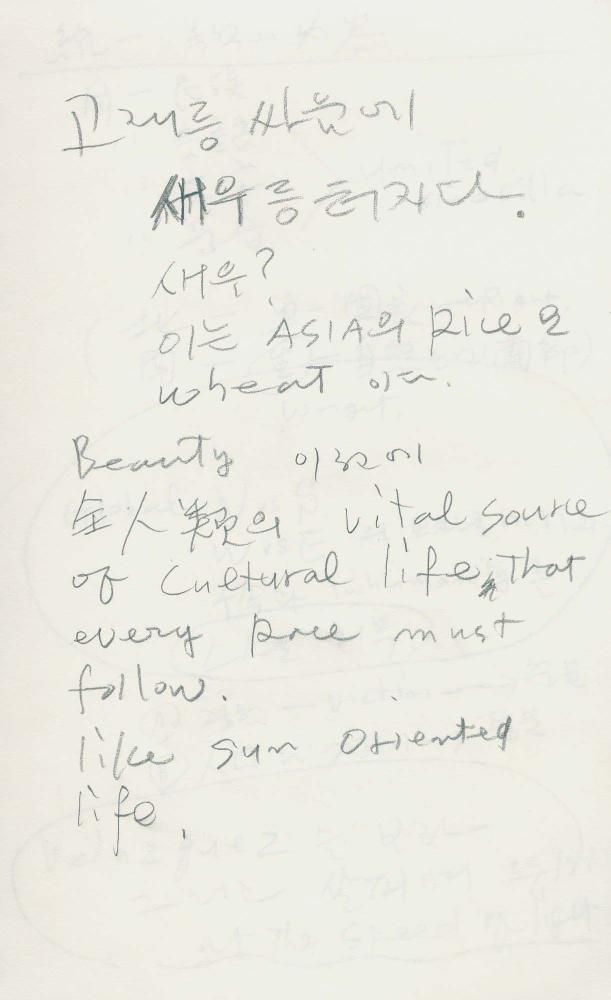 고래등 싸움에
새우등 터지다.
새우?
이는 ASIA의 Rice 와
wheat 이다.
Beauty 이전에
全人類의 vital source
of Cultural life, That
every must
follow.
like Sun Oriented
life,